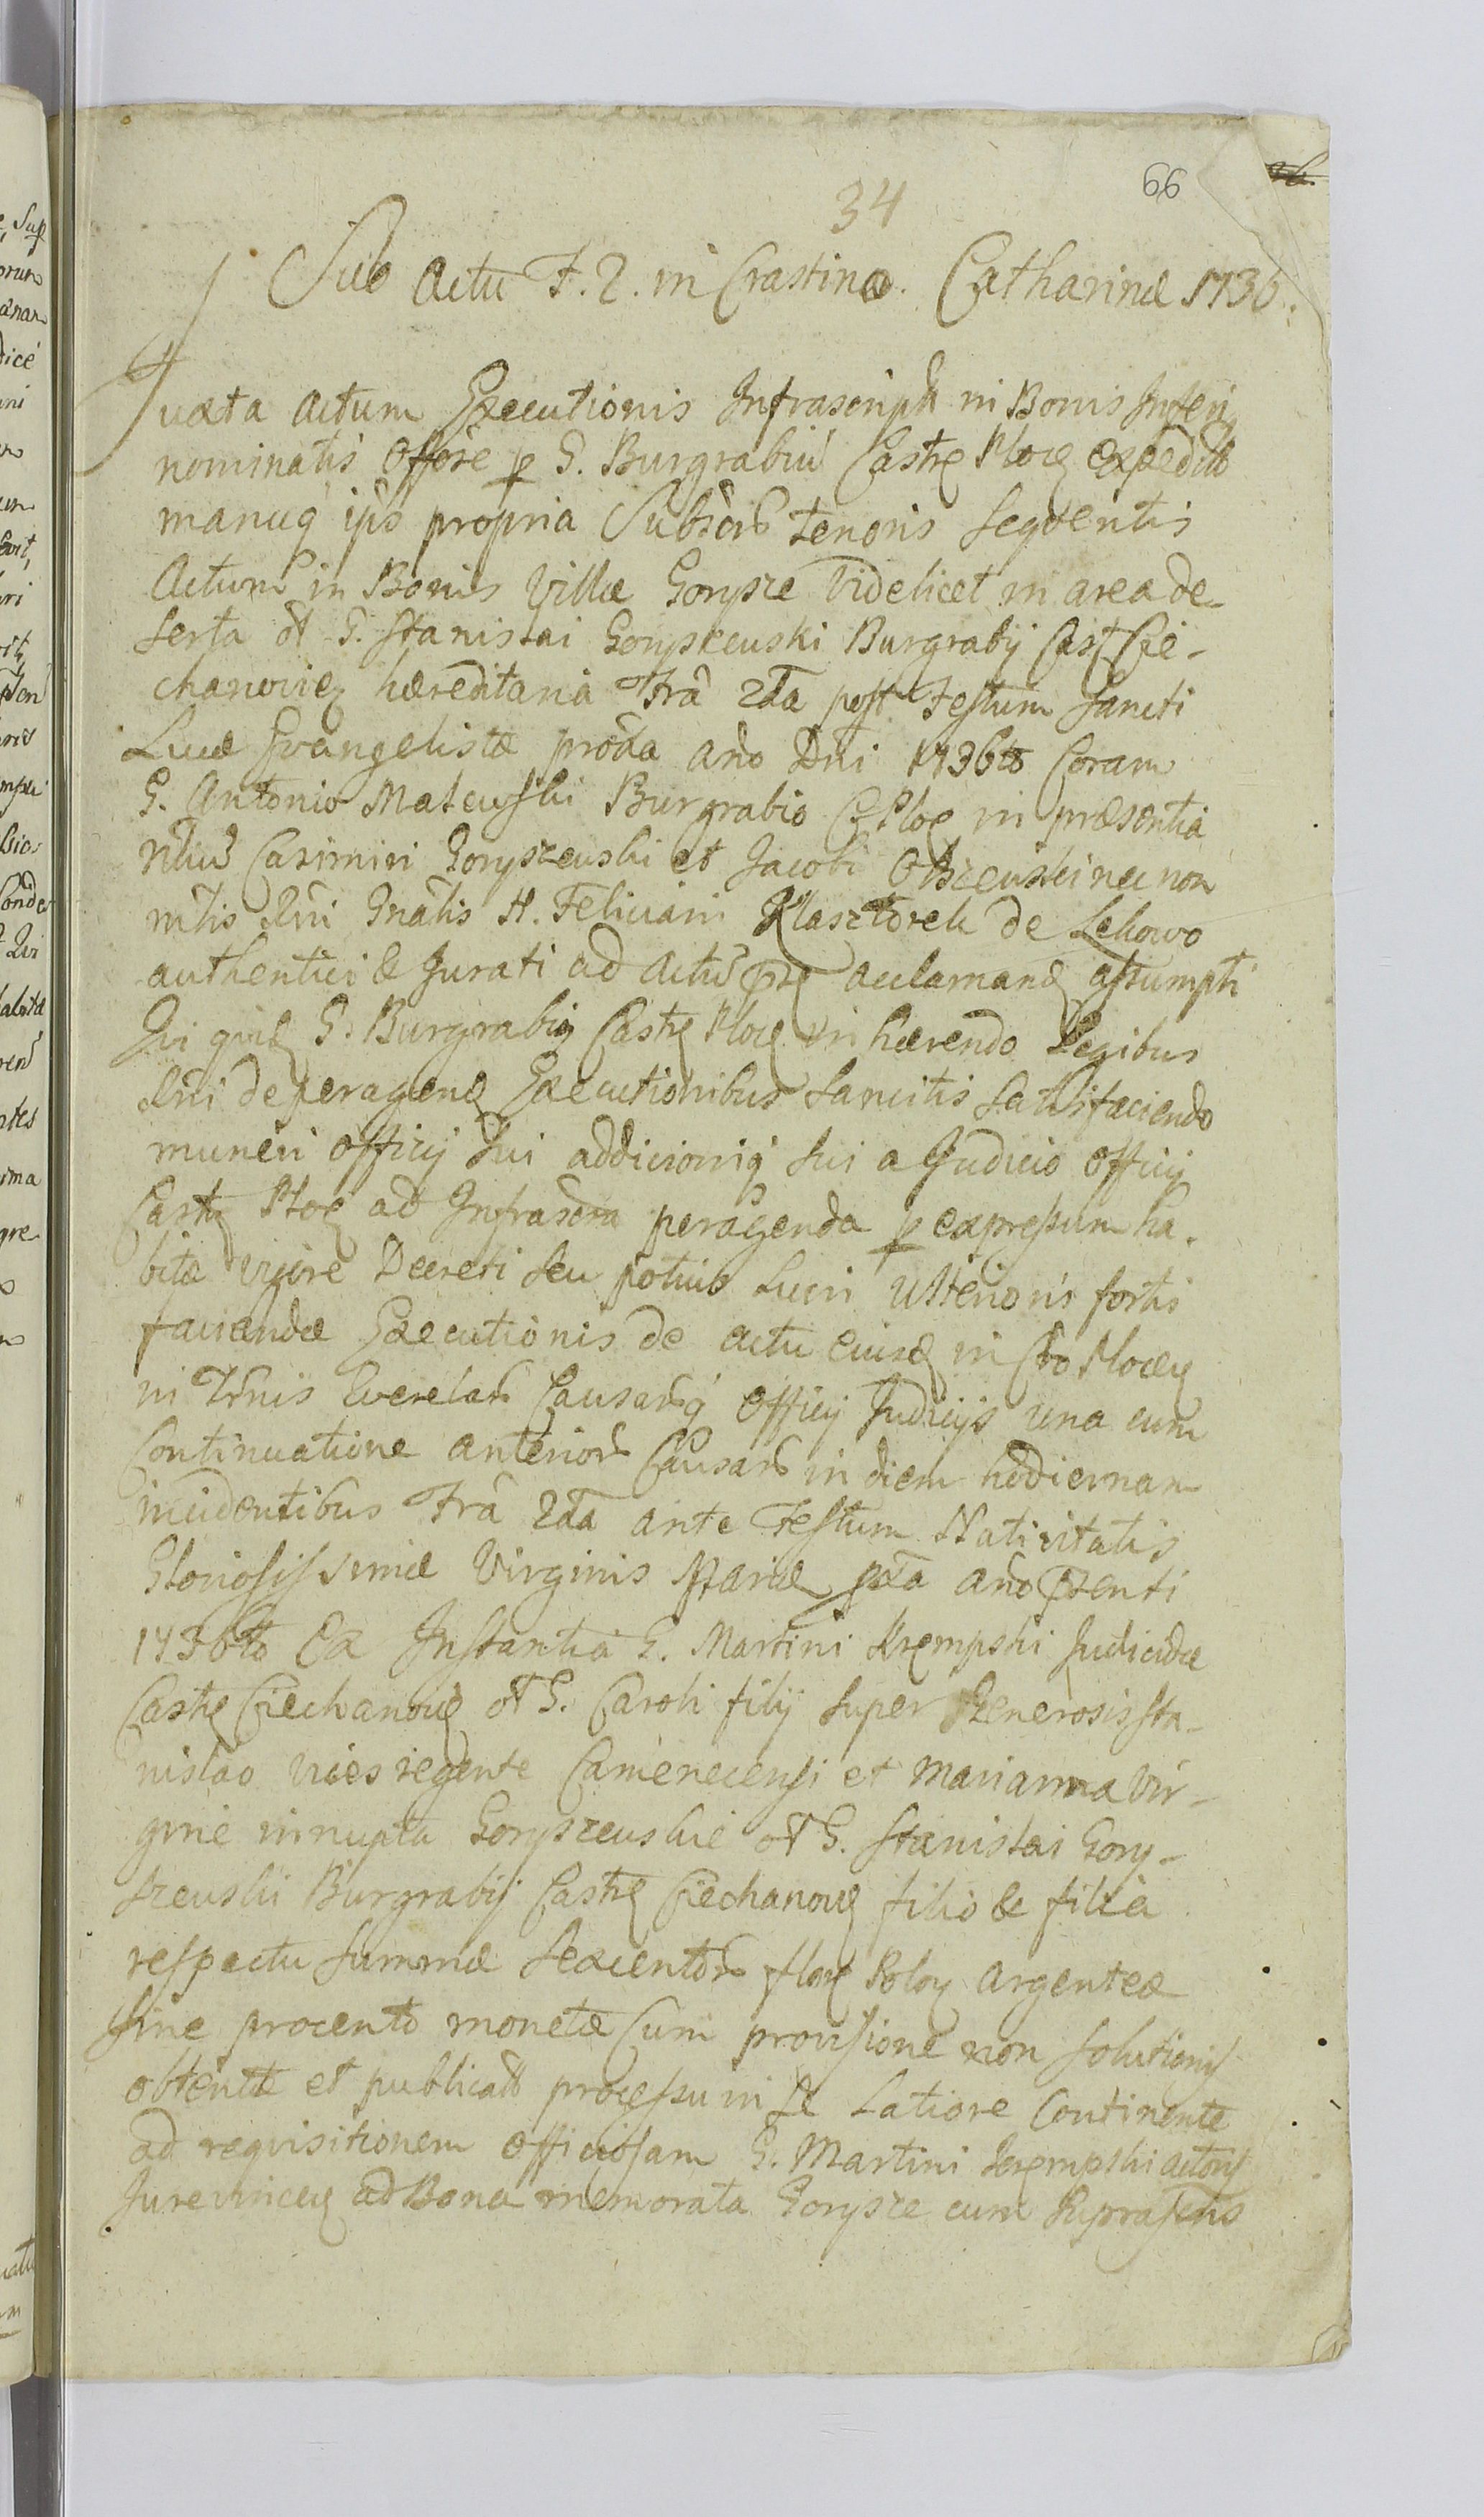 66
34
Sub Actu F. 2. in Crastino. Catharinæ 1736.
Juxta Actum Executionis Infrascript in Bonis Inferi
nominatis Offose p G. Burgrabiu Castr Ploc expedit
manuq ips propria Subscr tenoris seqventis
Actum in Bonis Villæ Gorysze Videlicet in area de-
serta ol G. Stanislai Goryszewski Burgrabij Cast Cie-
chanovie hæreditaria Fra 2da post Festum Sancti
Lucæ Evangelistæ proxa Ano Dni 1736to Coram
G. Antonio Matewski Burgrabio C Ploc in præsentia
Nliu Casimiri Goryszewski et Jacobi Olszewski nec non
mtis Rni Gnalis H. Feliciani Klasztorek de Lekowo
authentici & Jurati ad Actu acclamand assumpti
Qui quid G. Burgrabig Castr Ploc in hærendo Legibus
Rni de peragend Executionibus Sancitis Satisfaciendo
muneri officij Sui addicioniq Sui a Judicio officij
Castr Ploc ad Infrascra peragenda p expressum ha-
bitæ vigore Decreti seu potius Lucri Ulterioris fortis
faciendæ Executionis de actu eiusd in Cro Plocen
in Trnis Querelar Causarq Officij Judicijs una cum
Continuatione anterior Causar in diem hodiernam
incidentibus Fra 2da ante Festum Nativitatis
Gloriosissimæ Virginis Mariæ pxa ano pzenti
1736to Ex Instantia G. Martini Krempski Judicidæ
Castr Ciechanovie ol G. Caroli filij super Generosis Sta-
nislao Vices regente Camenecensi et Marianna Vir-
gine innupta Goryszewskie ol G. Stanislai Gory-
szewski Burgrabij Castr Ciechanovie filio & filia
respectu Summæ Sexcentor flor Polon argenteæ
sine procento monetæ Cum provisione non solutionis
obtentæ et publicat processu in se Latiore Continente
ad requisitionem officiosam G. Martini Krempski actoris
Jurevincen ad Bona memorata Gorysze cum Suprascris